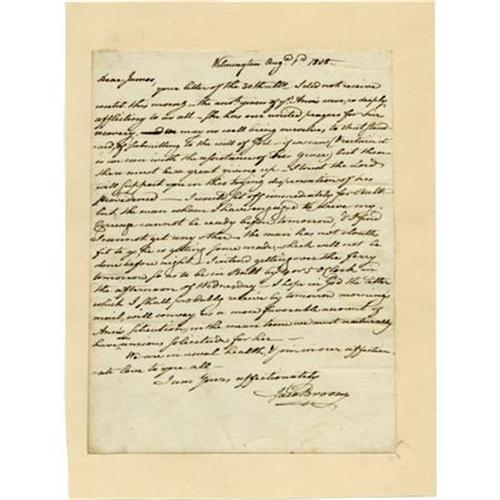 Wilmington Augt 1st 1808
Dear James,
your letter of the 30th Ulto I did not receive
until this morng - the acct given of Ann's case, is deeply
afflicting to us all - She has our united prayers for her
recovery. and we may no well being ourselves, to that stand
ard, of submitting to the will of God - if we can (& certain it
is we can with the assistance of his grace) but then
there must be a great giving up - I trust the Lord
will support you in this trying dispensation of his
providence - I would set off immediately for Balt
but, the man whom I have engaged to drive my
Carriage cannot be ready before tomorrow, & I find
I cannot get any other - the man has not cloaths
fit to go, he is getting some made, which will not be
done before night. I intend getting over the ferry
tomorrow so as to be in Balt by 4 or 5 O'Clock in
the afternoon of Wednesday - I hope in God the letter
which I shall probably receive by tomorrow morning
mail, will convey us a more favorable account of
Ann's situation, in the mean time we must naturally
have an anxious solicitude for her -
We are in usual health, & join in our affection
ate love to you all -
I am Yours affectionately
Jacob Broom